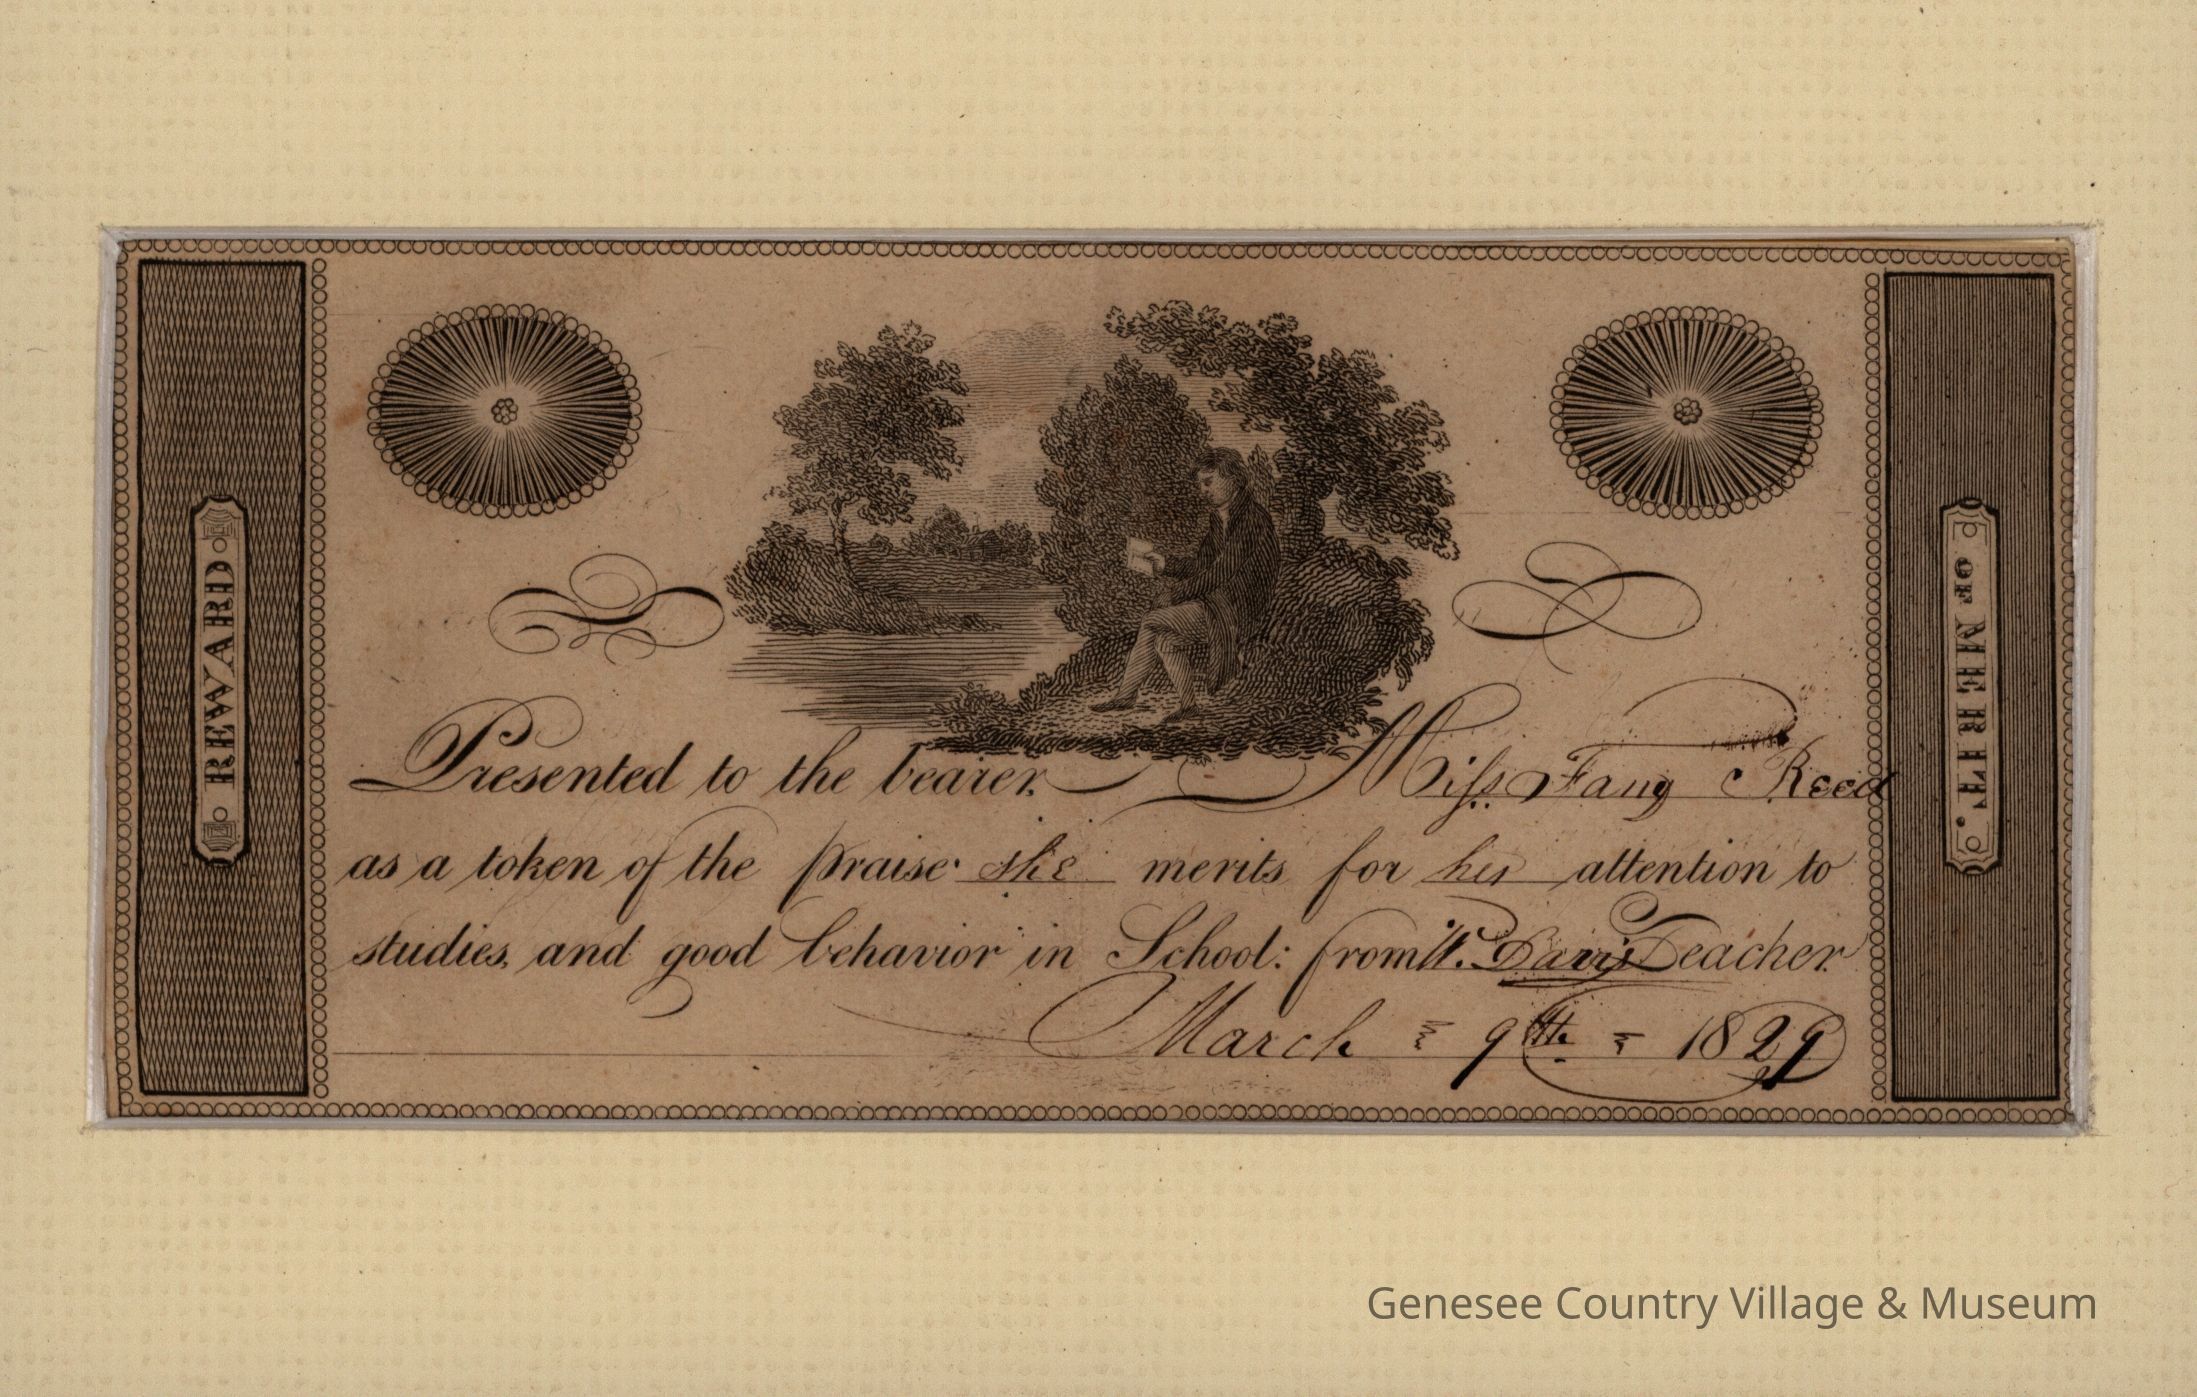 REWARD
OF MERIT.
Presented to the bearer. Miss Fany Reed
as a token of the praise she merits for her attention to
studies, and good behavior in School: from W. Davis Teacher.
March 9th 1829
Genesee Country Village & Museum